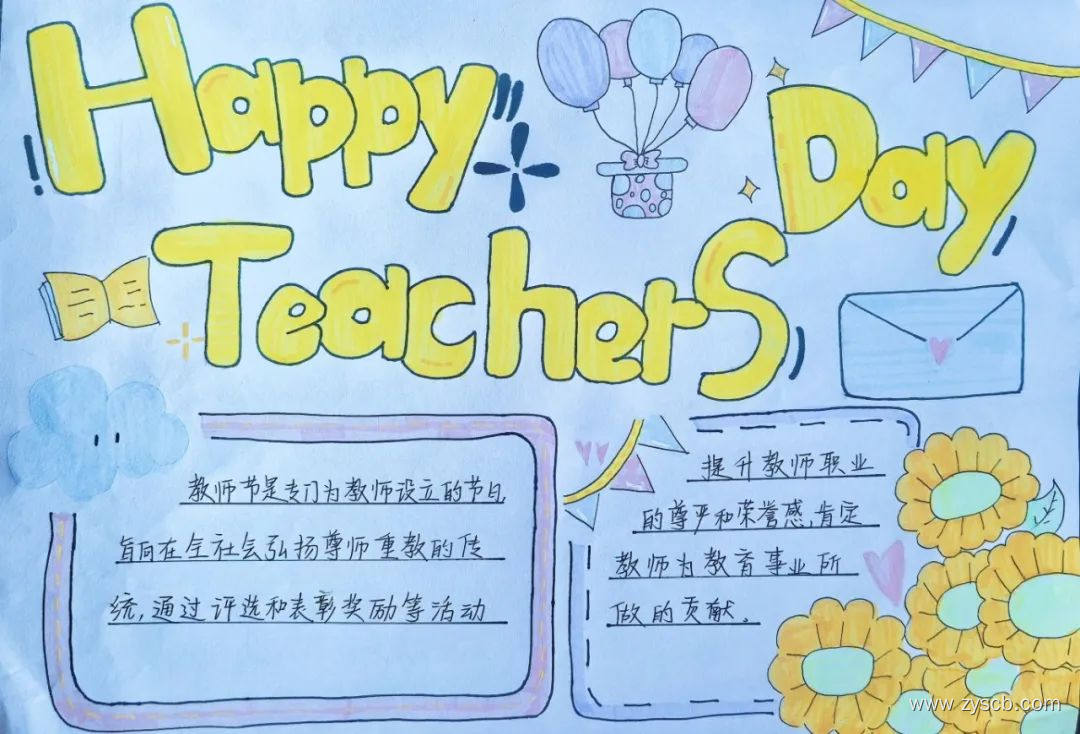 Happy
Day
Teachers
教师节是专门为教师设立的节日
旨向在全社会弘扬尊师重教的传
统,通过评选和表彰奖励等活动
提升教师职业
的尊严和荣誉感,肯定
教师为教育事业所
做的贡献。
www.zyscb.com